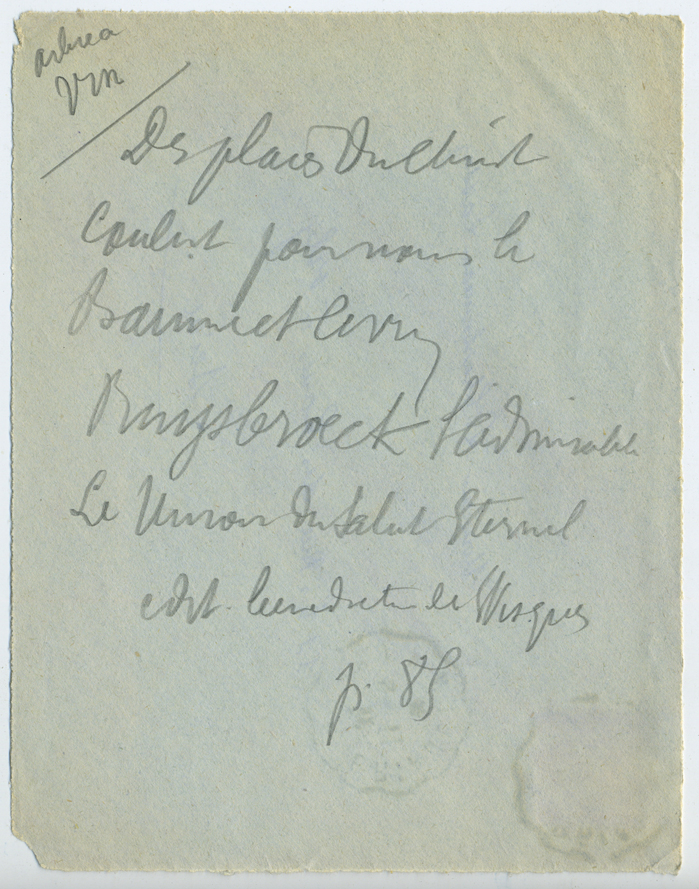 Des plaies du Christ
Coulent pour nous le
Baume et le vin
Ruysbroeck l'admirable
Le Miroir du Salut Eternel
edit. benedictin de Wisques
p. 85